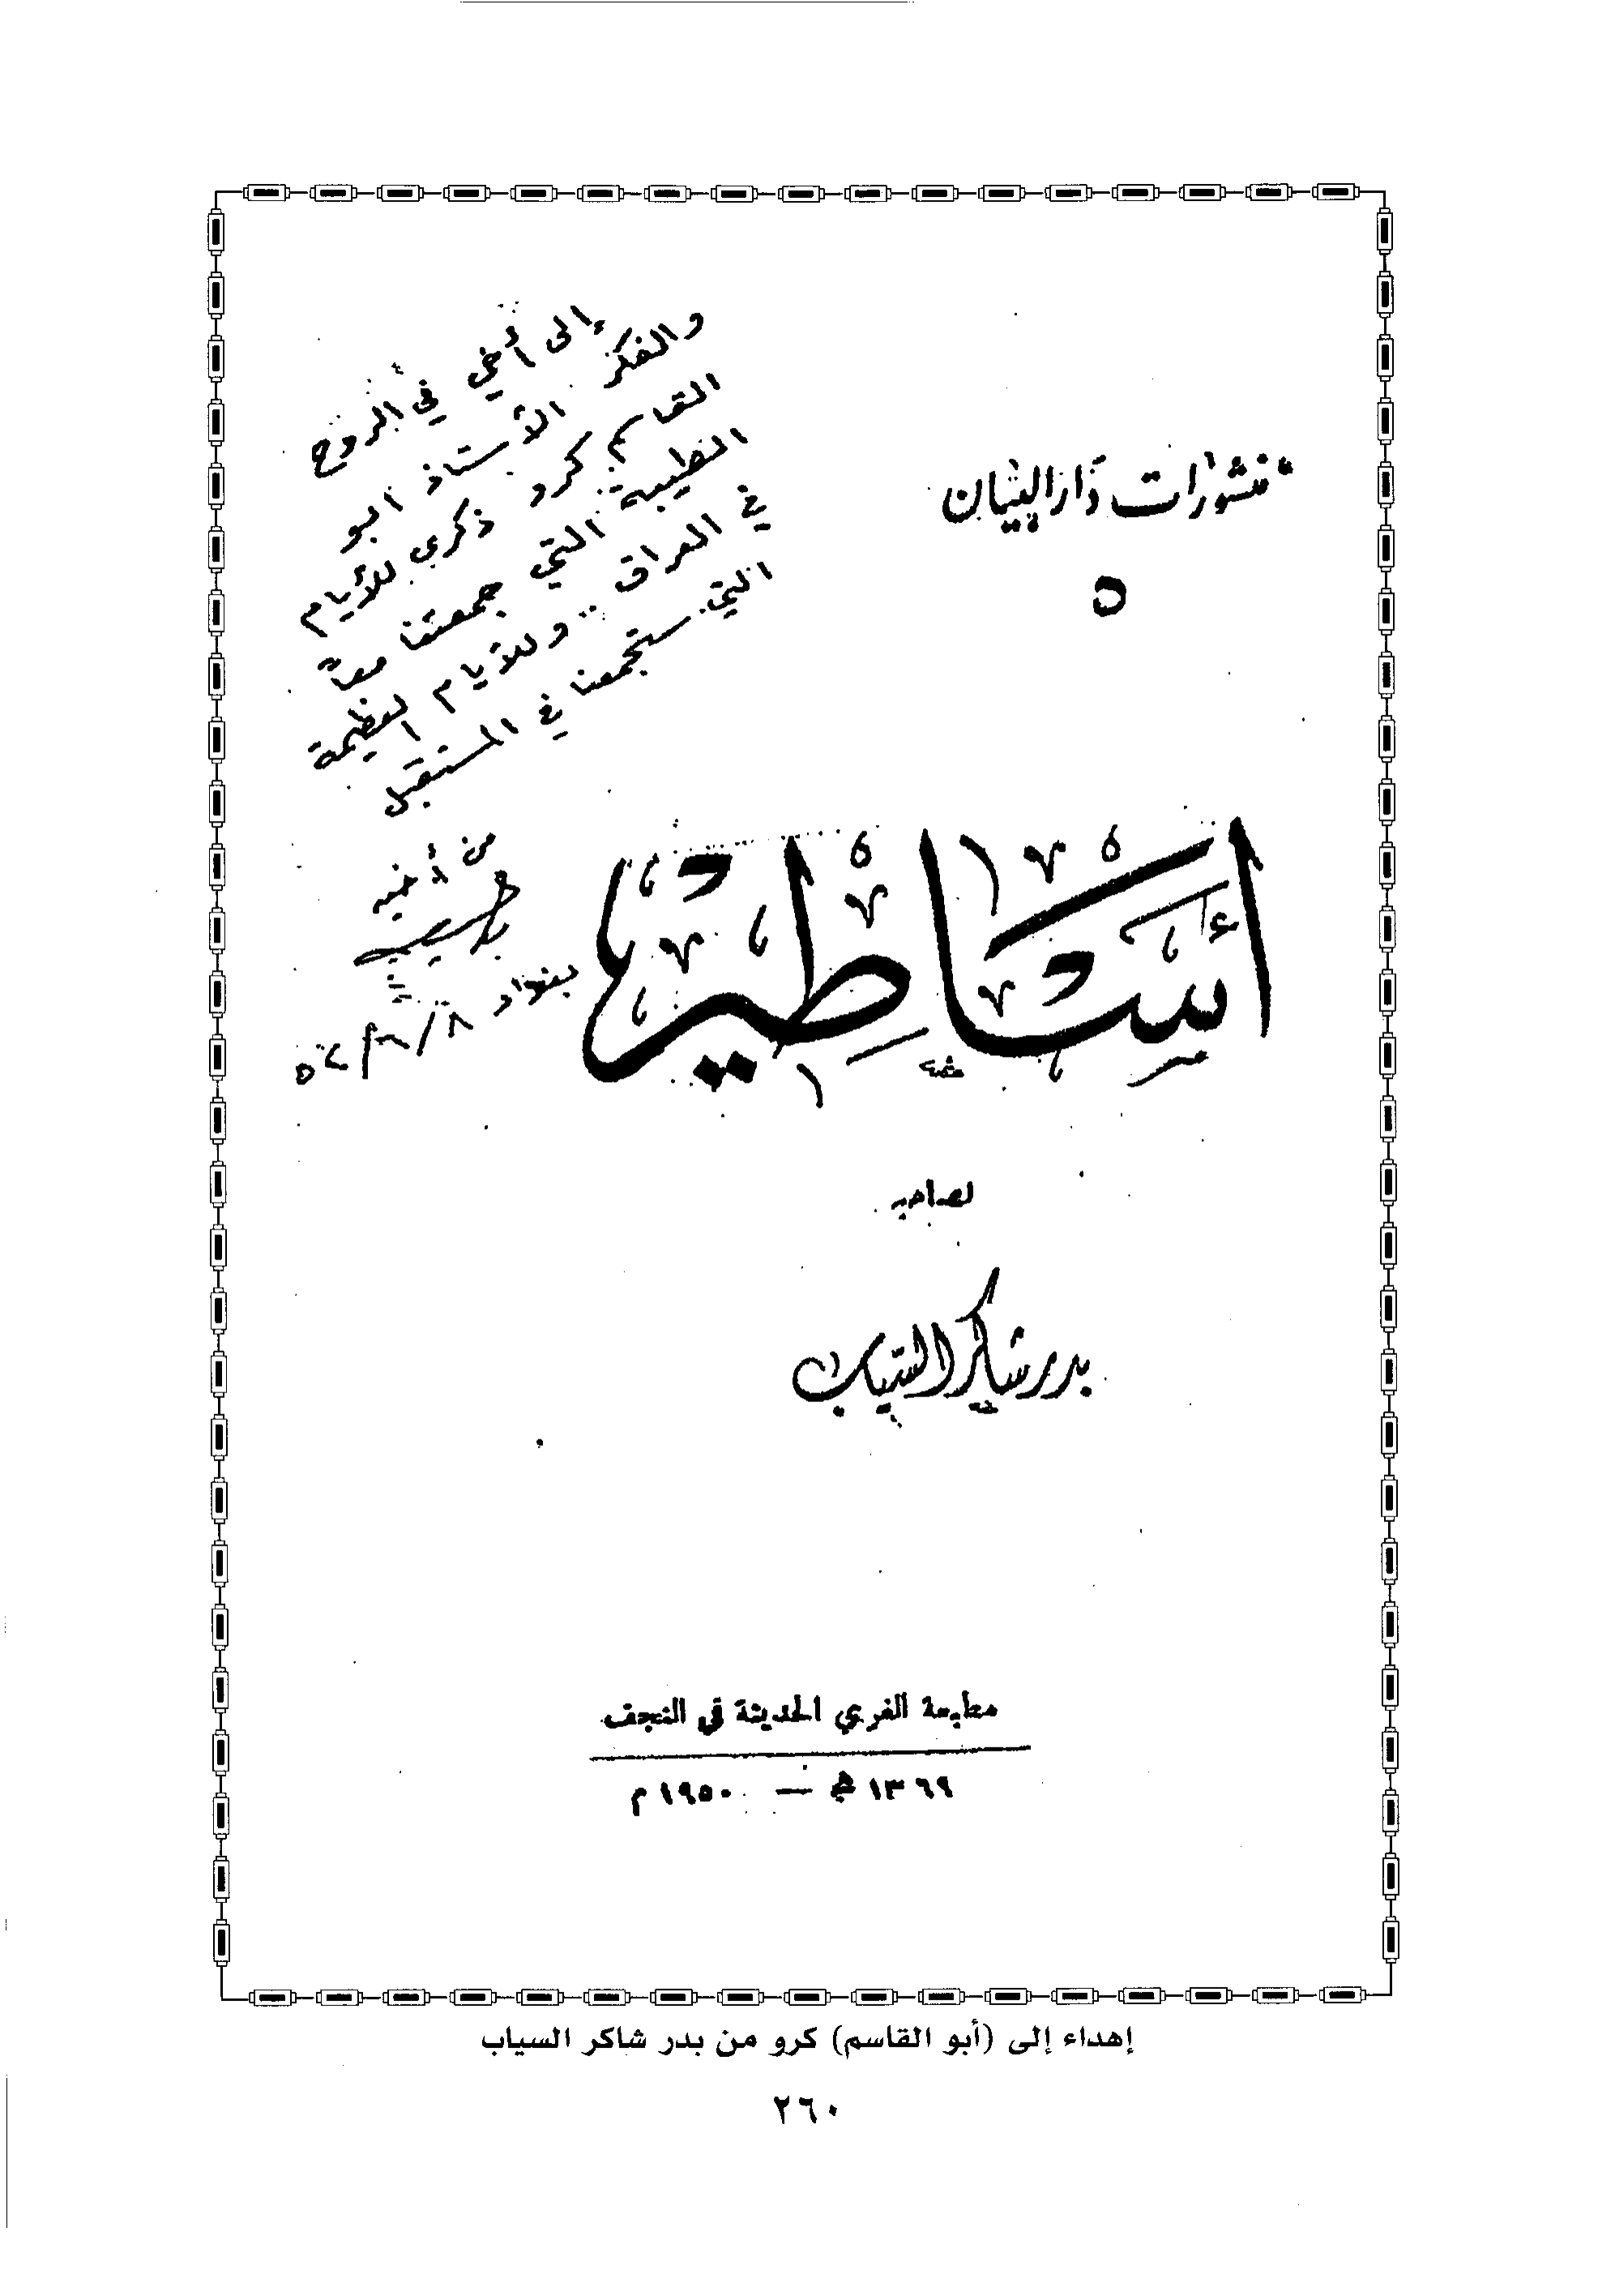 منشورات دار البيان
٥
إلى أخي في الروح
والفكر الأستاذ ابو
القاسم كرو ذكرى للأيام
الطيبة التي جمعتنا معاً
في العراق .. وللأيام العظيمة
التي ستجمعنا في المستقبل
من أخيه
بدر
بغداد
أساطير
لصاحبه
بدر شاكر السياب
مطبعة الغري الحديثة في النجف
١٣٦٩ هـ — ١٩٥٠ م
إهداء إلى (أبو القاسم) كرو من بدر شاكر السياب
٢٦٠